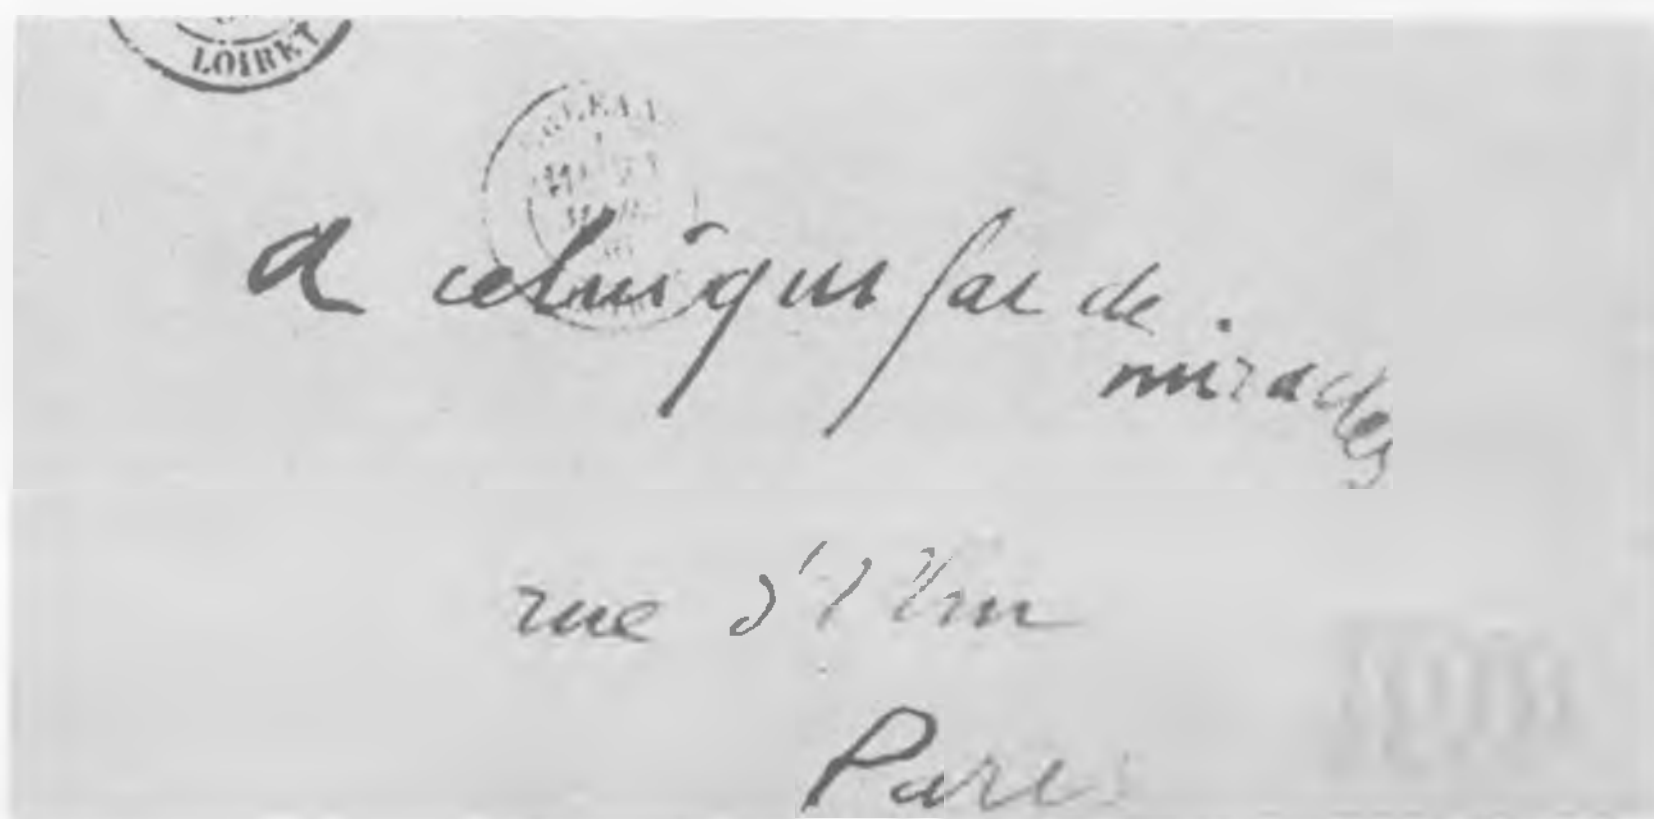 LOIRET
A celui qui fai de
miracles
rue d'Ulm
Paris